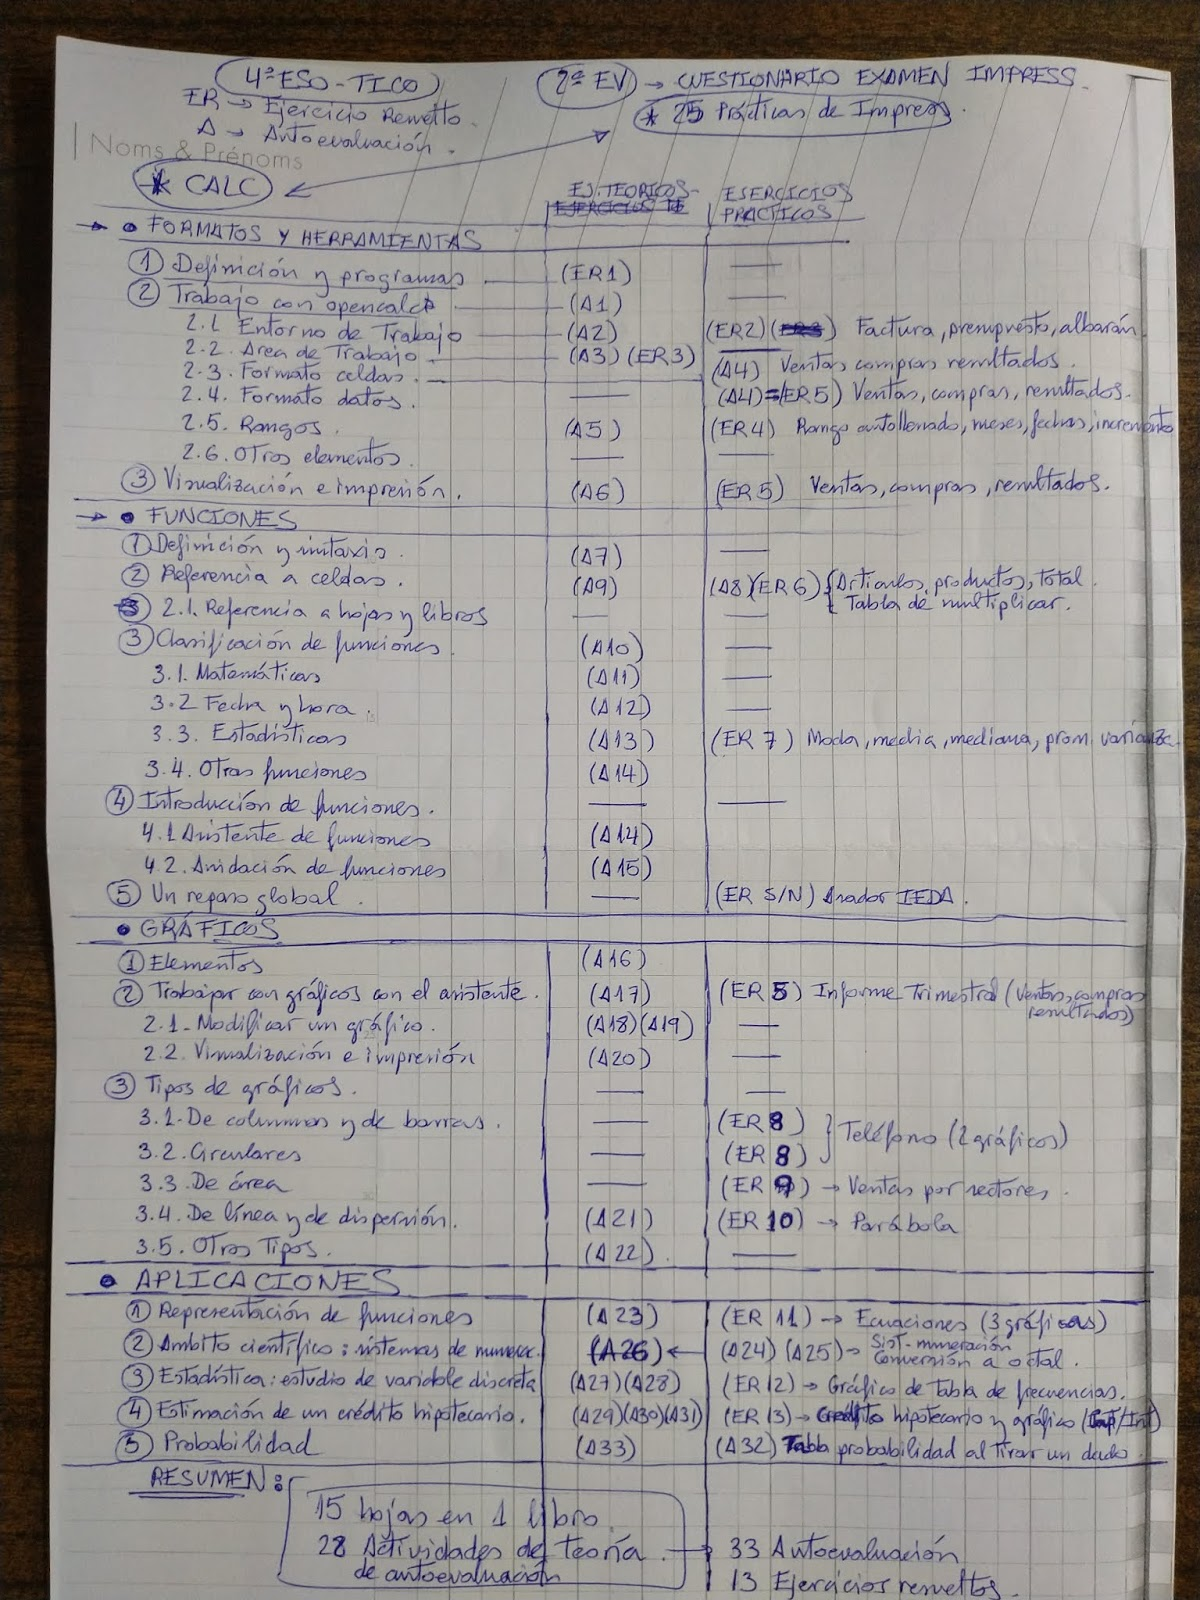 4ª ESO - TICO 2ª EV → CUESTIONARIO EXAMEN IMPRESS.
ER → Ejercicio Resuelto. * 25 Prácticas de Impress.
A → Autoevaluación.
Noms & Prénoms
* CALC EJ. TEORICOS- EJERCICIOS
EJERCICIOS TE PRACTICOS
→ • FORMATOS Y HERRAMIENTAS
① Definición y programas (ER1) —
② Trabajo con opencalc (A1) —
2.1 Entorno de Trabajo (A2) (ER2) (ER3) Factura, presupuesto, albarán
2.2. Area de Trabajo (A3) (ER3)
2.3. Formato celdas. — (A4) Ventas compras resultados.
2.4. Formato datos. — (A4)=(ER5) Ventas, compras, resultados.
2.5. Rangos. (A5) (ER4) Rango autollenado, meses, fechas, incremento
2.6. Otros elementos. — —
③ Visualización e impresión. (A6) (ER5) Ventas, compras, resultados.
→ • FUNCIONES
① Definición y sintaxis. (A7) —
② Referencia a celdas. (A9) (A8)(ER6) { Artículos, productos, total.
Tabla de multiplicar.
2.1. Referencia a hojas y libros — —
③ Clasificación de funciones. (A10) —
3.1. Matemáticas (A11) —
3.2 Fecha y hora. (A12) —
3.3. Estadísticas (A13) (ER7) Moda, media, mediana, prom. varianza.
3.4. Otras funciones (A14)
④ Introducción de funciones. — —
4.1 Asistente de funciones (A14)
4.2. Anidación de funciones (A15)
⑤ Un repaso global. — (ER S/N) Arador IEDA.
• GRÁFICOS
① Elementos (A16)
② Trabajar con gráficos con el asistente. (A17) (ER5) Informe Trimestral (ventas, compras
resultados)
2.1- Modificar un gráfico. (A18)(A19) —
2.2. Visualización e impresión (A20) —
③ Tipos de gráficos. — —
3.1- De columnas y de barras. — (ER 8) } Teléfono (2 gráficos)
3.2. Circulares — (ER 8)
3.3. De área — (ER 9) → Ventas por sectores.
3.4. De línea y de dispersión. (A21) (ER 10) → Parábola
3.5. Otros Tipos. (A22). —
• APLICACIONES
① Representación de funciones (A23) (ER 11) → Ecuaciones (3 gráficas)
② Ambito científico: sistemas de numerac. (A26) ← (A24) (A25) → Sist. numeración
Conversión a octal.
③ Estadística: estudio de variable discreta (A27)(A28) (ER 12) → Gráfico de Tabla de frecuencias.
④ Estimación de un crédito hipotecario. (A29)(A30)(A31) (ER 13) → Crédito hipotecario y gráfico (Cap/Int)
⑤ Probabilidad (A33) (A32) Tabla probabilidad al tirar un dado.
RESUMEN:
15 hojas en 1 libro.
28 Actividades de teoría. → 33 Autoevaluación
de autoevaluación 13 Ejercicios resueltos.